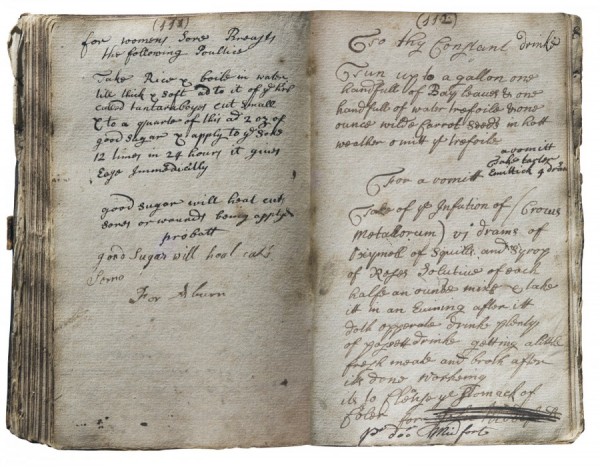 (111)
for womens Sore Breasts
the following Poultice
Take Rice & boile in water
till thick & soft ad to it of ye hearb
called cut small
& to a quarter of this ad 2 oz of
good sugar & apply to ye Sore
12 times in 24 hours it gives
Ease Immediatly
good sugar will heal cuts
sores or wounds being apply
probatt
good Sugar will heal cuts
For A burn
(112)
To thy Constant drinke
Tun up to a gallon one
handfull of Bay leaves & one
handfull of water trefoile & one
ounce wilde Carrot Seeds in hott
weather omitt ye trefoile
a vomitt
take tartar
Emittick 4 grains
For a vomitt
Take of ye Infation of (Crocus
metallorum) vi drams of
oxymell of Squills and Syrop
of Roses Solutive of each
halfe an ounce mixe & take
it in an Evning after itt
doth opperate drinke plenty
of possett drinke getting alitle
fresh meate and broth after
its done working
its to Clense ye stomack of
ph doc